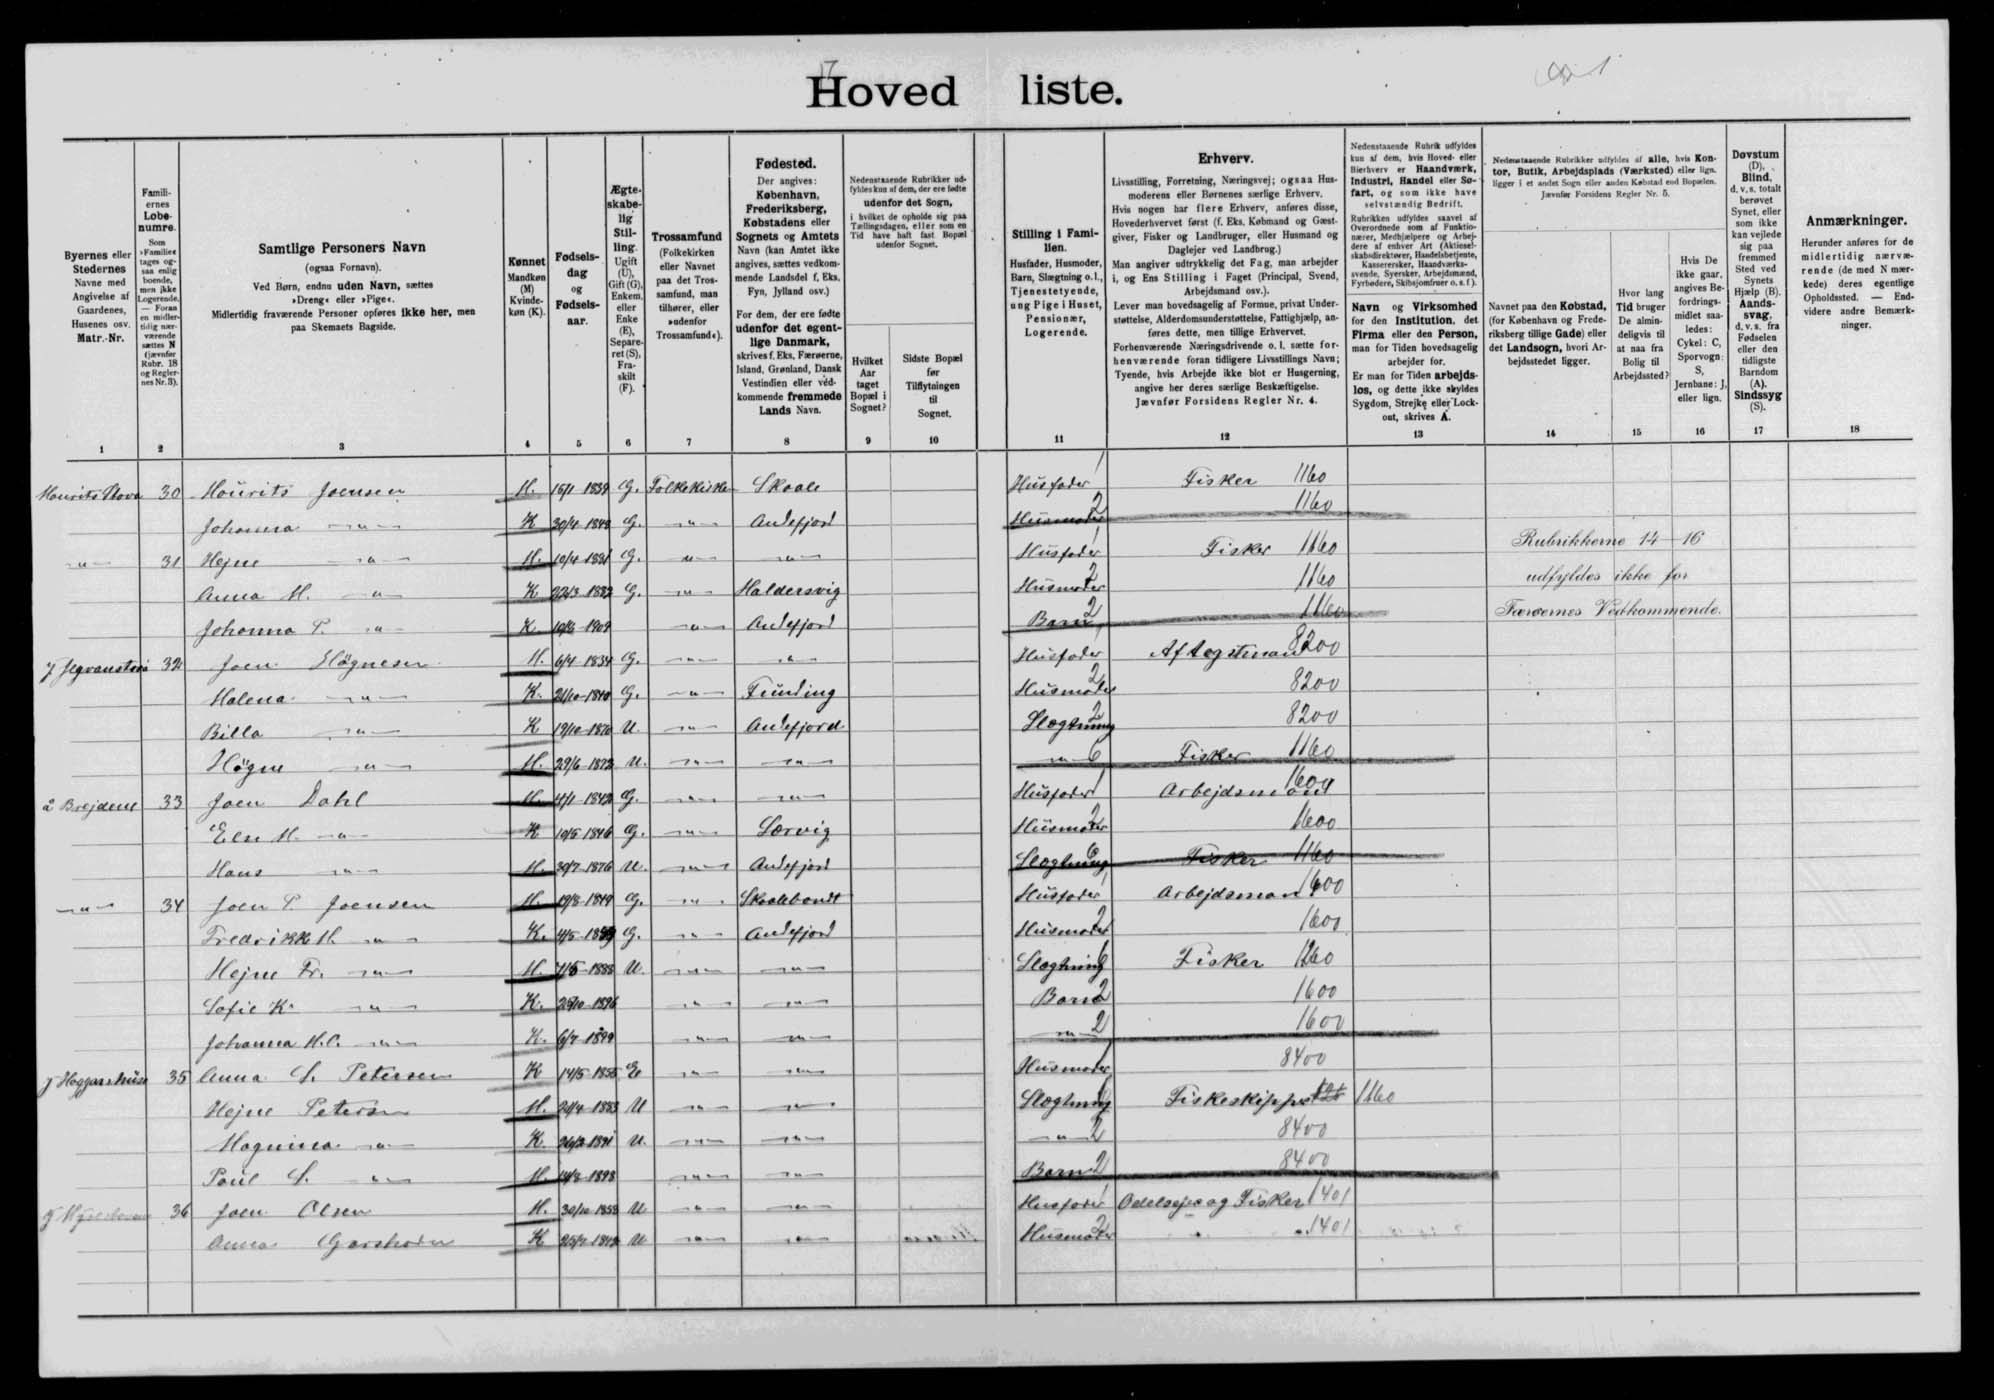 Hoved liste.
17
Byernes eller Stedernes Navne med Angivelse af Gaardenes, Husenes osv. Matr.-Nr.
Famili- ernes Løbe- numre. Som »Familie« tages og- saa enlig boende, men ikke Logerende. — Foran en midler- tidig nær- værende sættes N (jævnfør Rubr. 18 og Regler- nes Nr. 3).
Samtlige Personers Navn (ogsaa Fornavn). Ved Børn, endnu uden Navn, sættes »Dreng« eller »Pige«. Midlertidig fraværende Personer opføres ikke her, men paa Skemaets Bagside.
Kønnet Mandkøn (M) Kvinde- køn (K).
Fødsels- dag og Fødsels- aar.
Ægte- skabe- lig Stil- ling. Ugift (U), Gift (G), Enkem. eller Enke (E), Separe- ret (S), Fra- skilt (F).
Trossamfund (Folkekirken eller Navnet paa det Tros- samfund, man tilhører, eller »udenfor Trossamfund«).
Fødested. Der angives: København, Frederiksberg, Købstadens eller Sognets og Amtets Navn (kan Amtet ikke angives, sættes vedkom- mende Landsdel f. Eks. Fyn, Jylland osv.) For dem, der ere fødte udenfor det egent- lige Danmark, skrives f. Eks. Færøerne, Island, Grønland, Dansk Vestindien eller ved- kommende fremmede Lands Navn.
Nedenstaaende Rubrikker ud- fyldes kun af dem, der ere fødte udenfor det Sogn, i hvilket de opholde sig paa Tællingsdagen, eller som en Tid have haft fast Bopæl udenfor Sognet.
Hvilket Aar taget Bopæl i Sognet?
Sidste Bopæl før Tilflytningen til Sognet.
Stilling i Fami- lien. Husfader, Husmoder, Barn, Slægtning o. l., Tjenestetyende, ung Pige i Huset, Pensionær, Logerende.
Erhverv. Livsstilling, Forretning, Næringsvej; ogsaa Hus- moderens eller Børnenes særlige Erhverv. Hvis nogen har flere Erhverv, anføres disse, Hovederhvervet først (f. Eks. Købmand og Gæst- giver, Fisker og Landbruger, eller Husmand og Daglejer ved Landbrug.) Man angiver udtrykkelig det Fag, man arbejder i, og Ens Stilling i Faget (Principal, Svend, Arbejdsmand osv.). Lever man hovedsagelig af Formue, privat Under- støttelse, Alderdomsunderstøttelse, Fattighjælp, an- føres dette, men tillige Erhvervet. Forhenværende Næringsdrivende o. l. sætte for- henværende foran tidligere Livsstillings Navn; Tyende, hvis Arbejde ikke blot er Husgerning, angive her deres særlige Beskæftigelse. Jævnfør Forsidens Regler Nr. 4.
Nedenstaaende Rubrik udfyldes kun af dem, hvis Hoved- eller Bierhverv er Haandværk, Industri, Handel eller Sø- fart, og som ikke have selvstændig Bedrift. Rubrikken udfyldes saavel af Overordnede som af Funktio- nærer, Medhjælpere og Arbej- dere af enhver Art (Aktiesel- skabsdirektører, Handelsbetjente, Kasserersker, Haandværks- svende, Syersker, Arbejdsmænd, Fyrbødere, Skibsjomfruer o. s. f.).
Navn og Virksomhed for den Institution, det Firma eller den Person, man for Tiden hovedsagelig arbejder for. Er man for Tiden arbejds- løs, og dette ikke skyldes Sygdom, Strejke eller Lock- out, skrives A.
Nedenstaaende Rubrikker udfyldes af alle, hvis Kon- tor, Butik, Arbejdsplads (Værksted) eller lign. ligger i et andet Sogn eller anden Købstad end Bopælen. Jævnfør Forsidens Regler Nr. 5.
Navnet paa den Købstad, (for København og Frede- riksberg tillige Gade) eller det Landsogn, hvori Ar- bejdsstedet ligger.
Hvor lang Tid bruger De almin- deligvis til at naa fra Bolig til Arbejdssted?
Hvis De ikke gaar, angives Be- fordrings- midlet saa- ledes: Cykel: C, Sporvogn: S, Jernbane: J, eller lign.
Døvstum (D), Blind, d. v. s. totalt berøvet Synet, eller som ikke kan vejlede sig paa fremmed Sted ved Synets Hjælp (B). Aands- svag, d. v. s. fra Fødselen eller den tidligste Barndom (A). Sindssyg (S).
Anmærkninger. Herunder anføres for de midlertidig nærvæ- rende (de med N mær- kede) deres egentlige Opholdssted. — End- videre andre Bemærk- ninger.
1 2 3 4 5 6 7 8 9 10 11 12 13 14 15 16 17 18
30 Mourits Joensen M. 15/1 1839 G. Folkekirke Skaale Husfader 1 Fisker 1160
Johanna —"— K 30/4 1843 G. —"— Andefjord Husmoder 2 1160
—"— 31 Hejne —"— M. 10/4 1881 G. —"— —"— Husfader 1 Fisker 1160
Anna M. —"— K 22/3 1882 G. —"— Haldersvig Husmoder 2 1160
Johanna P. —"— K. 1909 —"— Andefjord Barn 2 1160
Rubrikkerne 14—16
udfyldes ikke for
Færøernes Vedkommende.
32 Joen Högnesen M. 6/4 1834 G. —"— —"— Husfader 1 Aftægtsmand 8200
Malena —"— K. 21/10 1840 G. —"— Funding Husmoder 2 8200
Billa —"— K 19/10 1870 U. —"— Andefjord Slægtning 2 8200
Högne —"— M. 29/6 1873 U. —"— —"— —"— 6 Fisker 1160
33 Joen Dahl M. 4/1 1842 G. —"— —"— Husfader 1 Arbejdsmand 1600
Else M. —"— K 10/5 1846 G. —"— Lorvig Husmoder 2 1600
Hans —"— M. 30/7 1876 U. —"— Andefjord Slægtning 6 Fisker 1160
—"— 34 Joen P. Joensen M. 19/8 1849 G. —"— Skaalebondt Husfader 1 Arbejdsmand 1600
Fredrikke M. —"— K. G. —"— Andefjord Husmoder 2 1600
Hejne Fr. —"— M. 1888 U. —"— —"— Slægtning 6 Fisker 1160
Sofie K. —"— K. 1896 —"— —"— Barn 2 1600
Johanna M.C. —"— K. 6/7 1899 —"— —"— —"— 2 1600
35 Anna S. Petersen K 14/5 1855 E —"— —"— Husmoder 1 8400
Hejne Petersen M. 1883 U —"— —"— Slægtning 6 Fiskeskipper 1160
Magnina —"— K. 1891 U. —"— —"— —"— 2 8400
Poul S. —"— M. 1898 —"— —"— Barn 2 8400
36 Joen Olsen M. 30/10 1858 U —"— —"— Husfader 1 Odelsejer og Fisker 1401
Anna K U —"— —"— Husmoder 2 1401